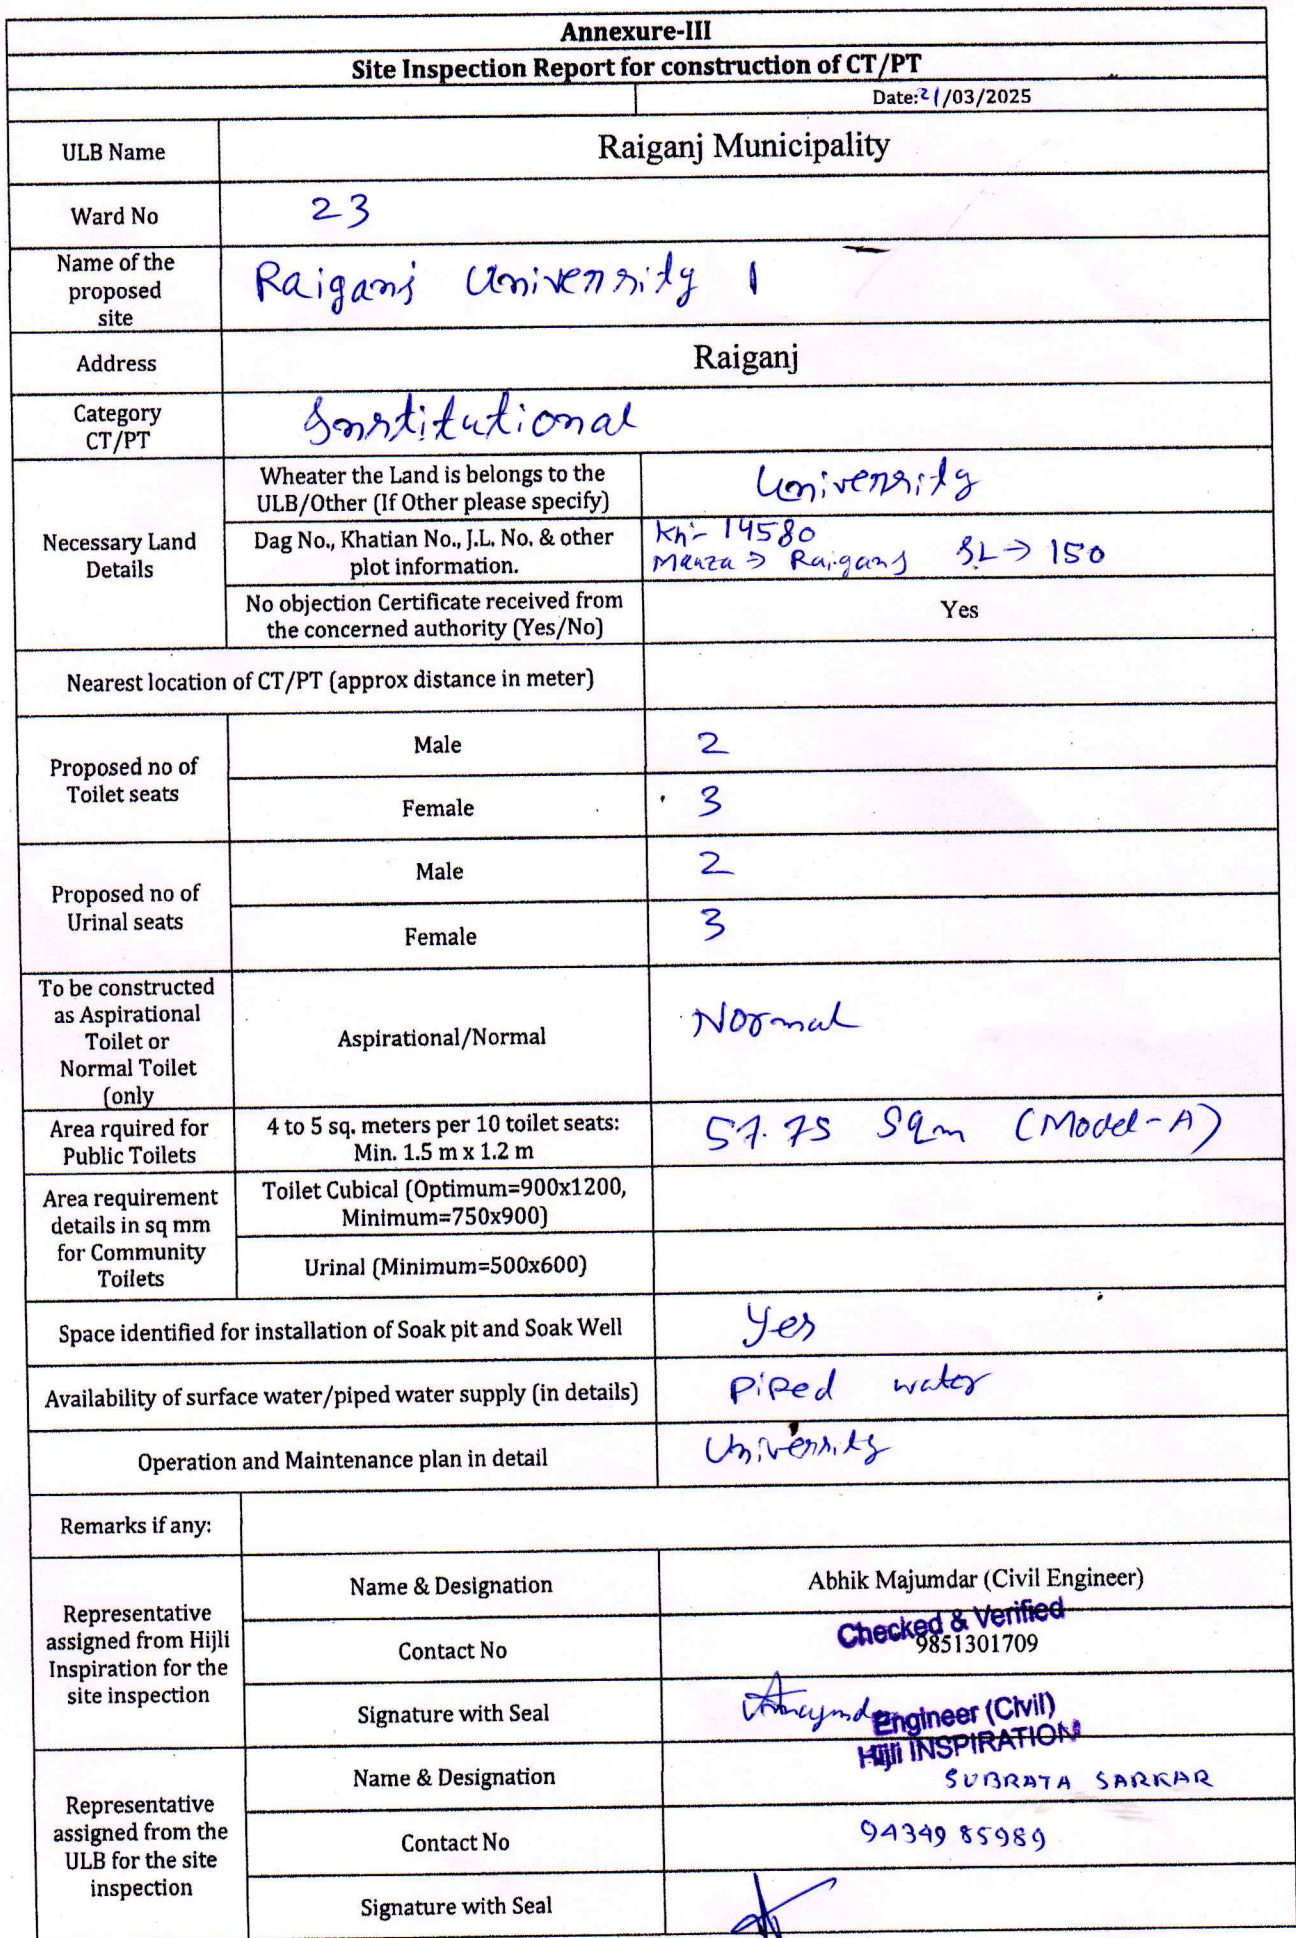 Annexure-III
Site Inspection Report for construction of CT/PT
Date:21/03/2025
ULB Name
Raiganj Municipality
Ward No
23
Name of the
proposed
site
Raiganj University 1
Address
Raiganj
Category
CT/PT
Institutional
Necessary Land
Details
Wheater the Land is belongs to the
ULB/Other (If Other please specify)
University
Dag No., Khatian No., J.L. No. & other
plot information.
Kh - 14580
Mauza → Raiganj JL → 150
No objection Certificate received from
the concerned authority (Yes/No)
Yes
Nearest location of CT/PT (approx distance in meter)
Proposed no of
Toilet seats
Male
2
Female
3
Proposed no of
Urinal seats
Male
2
Female
3
To be constructed
as Aspirational
Toilet or
Normal Toilet
(only
Aspirational/Normal
Normal
Area rquired for
Public Toilets
4 to 5 sq. meters per 10 toilet seats:
Min. 1.5 m x 1.2 m
57.75 Sqm (Model-A)
Area requirement
details in sq mm
for Community
Toilets
Toilet Cubical (Optimum=900x1200,
Minimum=750x900)
Urinal (Minimum=500x600)
Space identified for installation of Soak pit and Soak Well
Yes
Availability of surface water/piped water supply (in details)
Piped water
Operation and Maintenance plan in detail
University
Remarks if any:
Representative
assigned from Hijli
Inspiration for the
site inspection
Name & Designation
Abhik Majumdar (Civil Engineer)
Contact No
Checked & Verified
9851301709
Signature with Seal
Engineer (Civil)
Hijli INSPIRATION
Representative
assigned from the
ULB for the site
inspection
Name & Designation
SUBRATA SARKAR
Contact No
9434985989
Signature with Seal